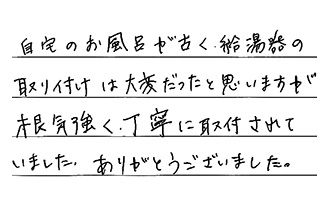 自宅のお風呂が古く、給湯器の
取り付けは大変だったと思いますが
根気強く、丁寧に取付されて
いました。ありがとうございました。